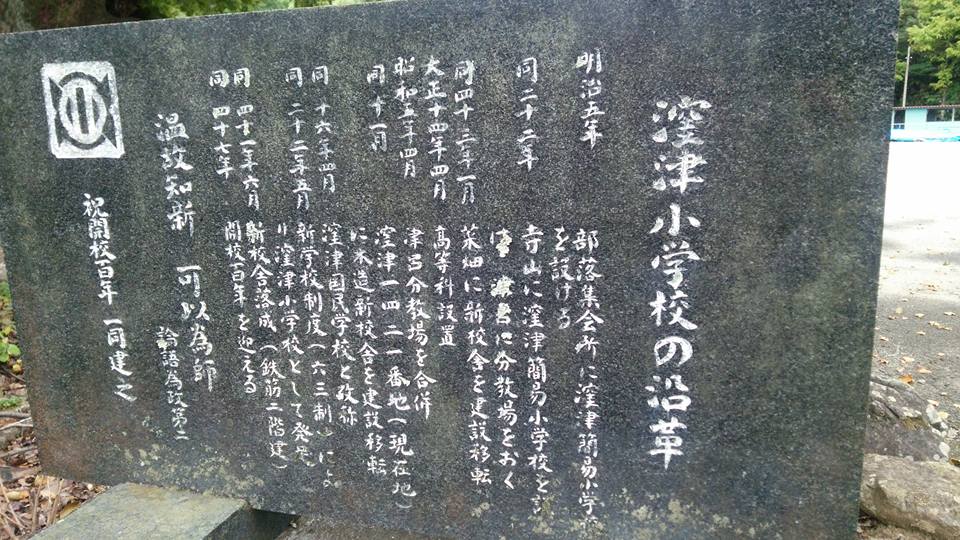 窪津小学校の沿革
明治五年 部落集会所に窪津簡易小学
を設ける
同二十二年 寺山に窪津簡易小学校を
に分教場をおく
同四十三年一月 菜畑に新校舎を建設移転
大正十四年四月 高等科設置
昭和五年四月 津呂分教場を合併
同十一月 窪津一四二一番地(現在地)
に木造新校舎を建設移転
同十六年四月 窪津国民学校と改称
同二十二年五月 新学校制度(六三制)によ
り窪津小学校として発足
同四十一年六月 新校舎落成(鉄筋二階建)
同四十七年 開校百年を迎える
温故知新 可以為師
論語為政第二
祝開校百年 一同建之